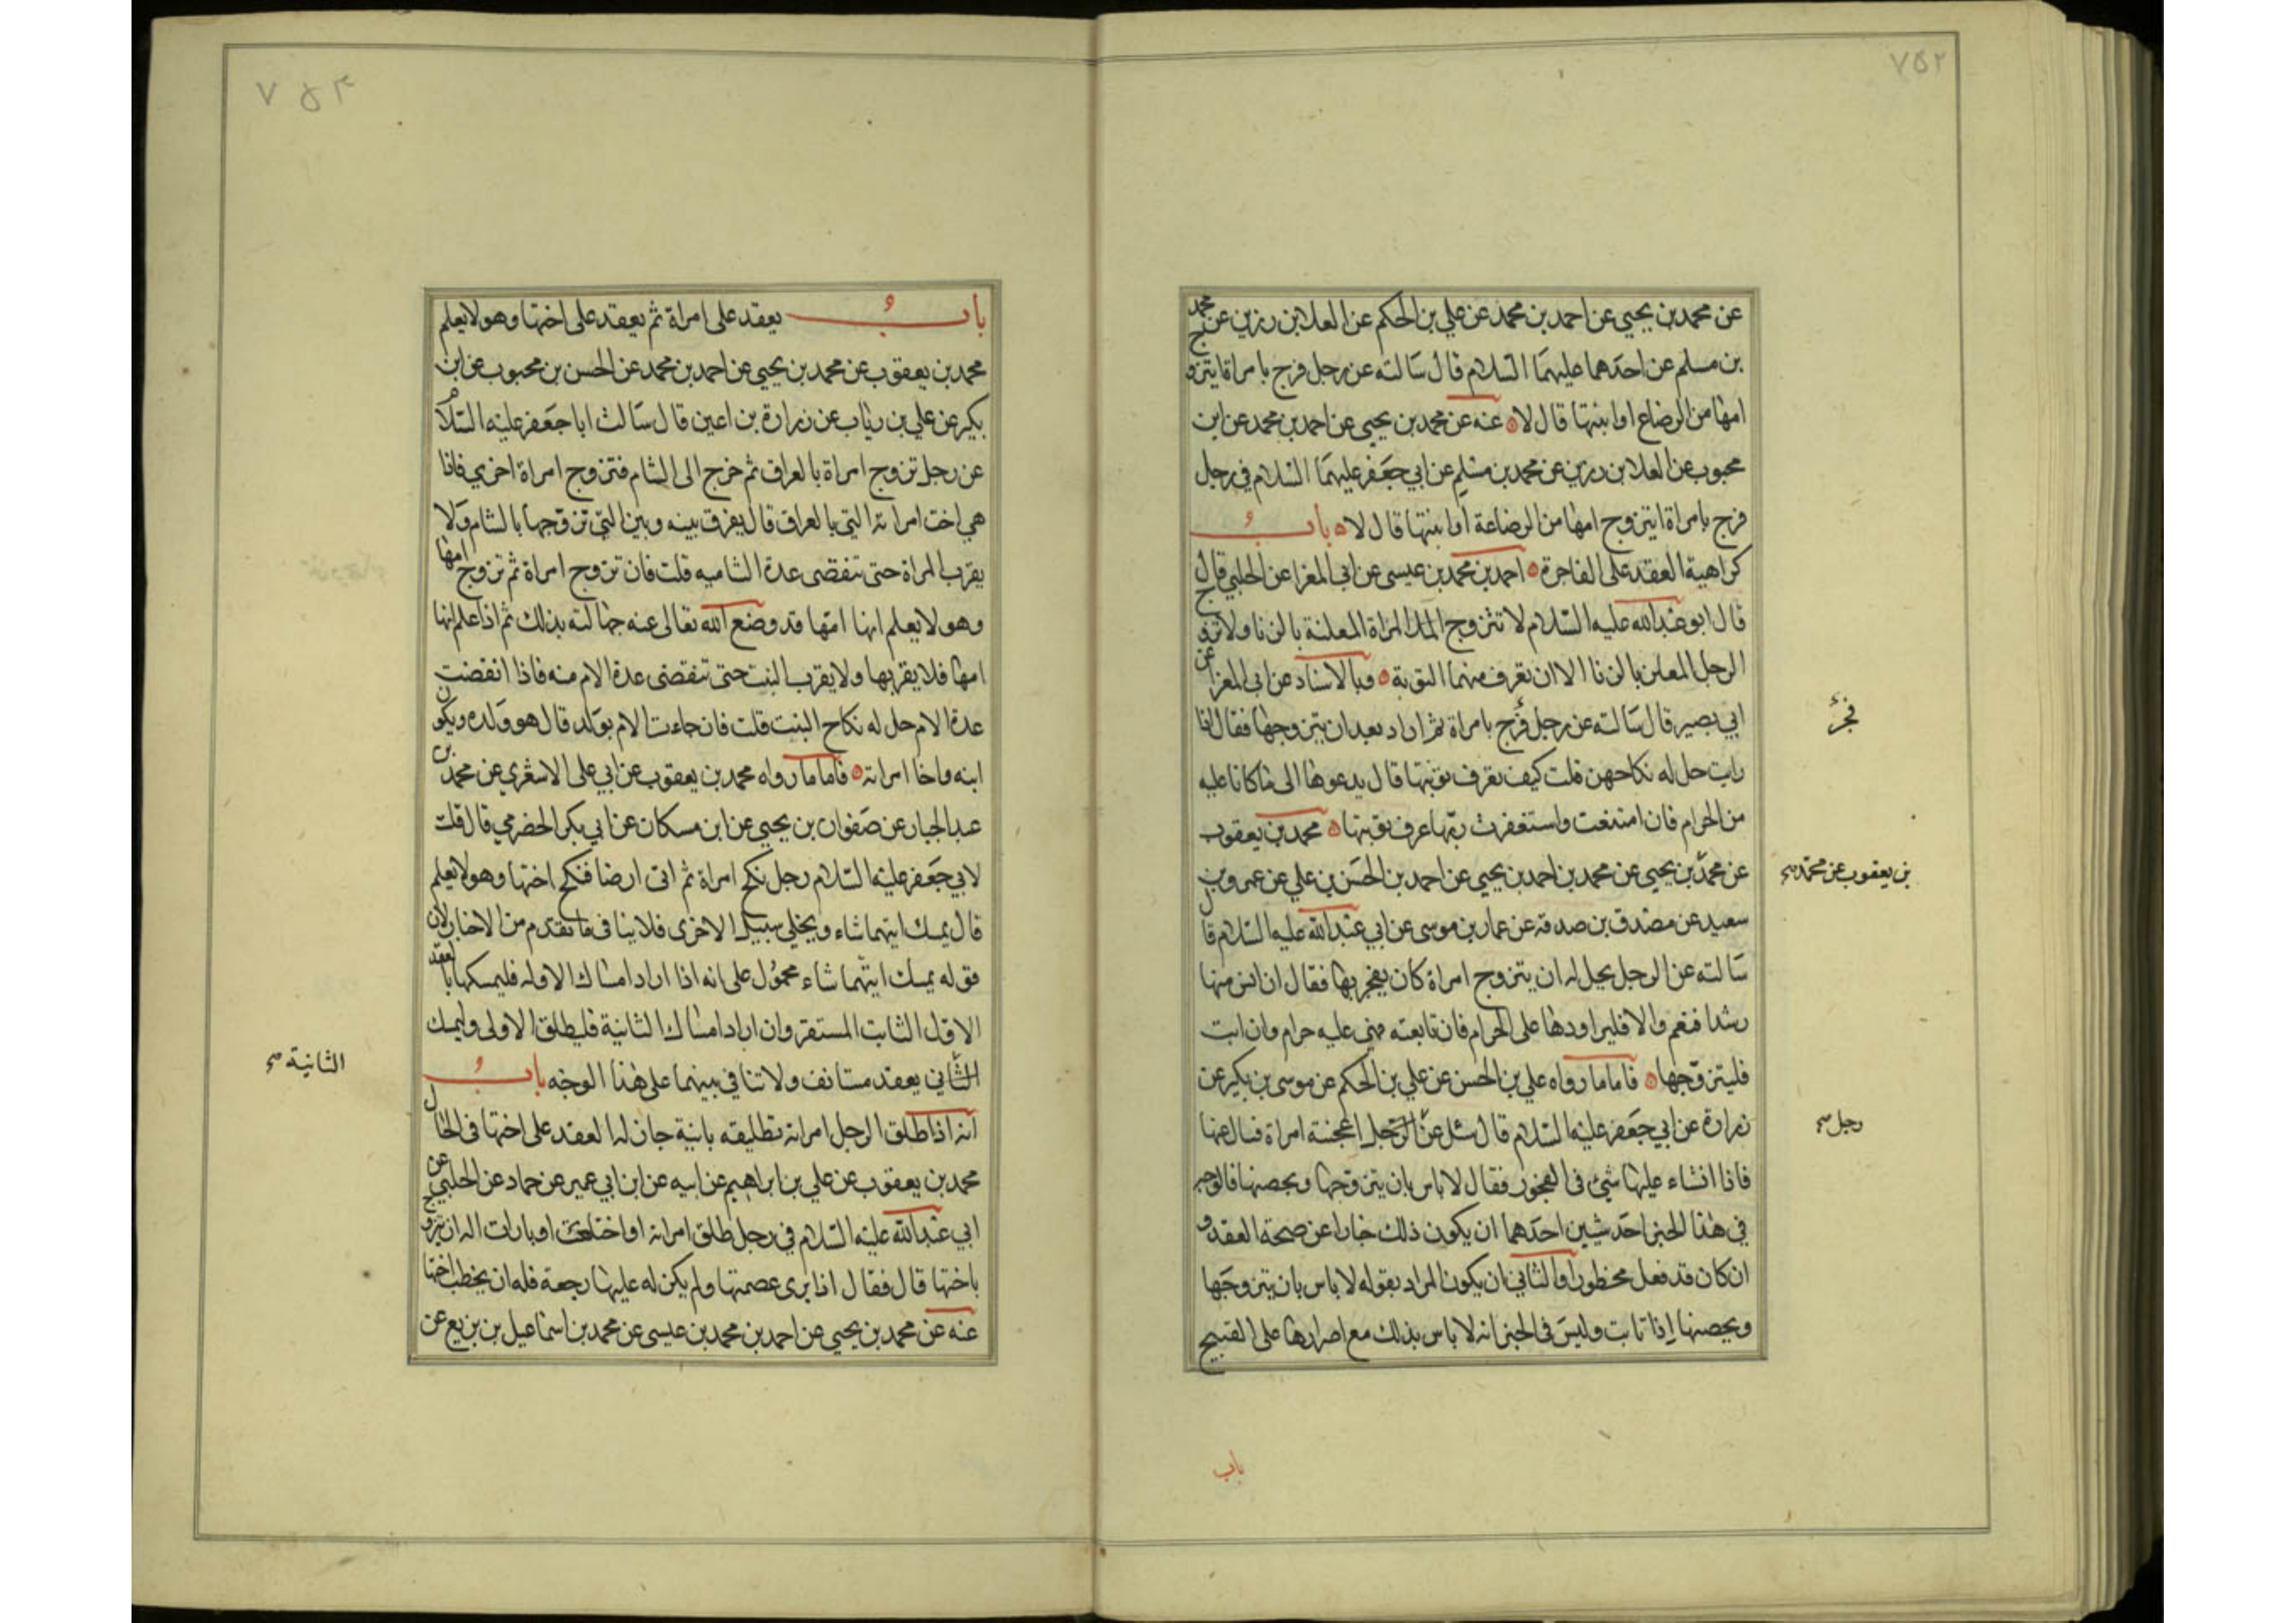 ٧٥٢
عن محمد بن يحيى عن احمد بن محمد عن علي بن الحكم عن العلا بن رزين عن محمد
بن مسلم عن احدهما عليهما السلام قال سالته عن رجل فجر بامراة ايتزوج
امها من الرضاع او ابنتها قال لا عنه عن محمد بن يحيى عن احمد بن محمد عن ابن
محبوب عن العلا بن رزين عن محمد بن مسلم عن ابي جعفر عليهما السلام في رجل
فجر بامراة ايتزوج امها من الرضاعة او ابنتها قال لا باب
كراهية العقد على الفاجرة احمد بن محمد بن عيسى عن ابي المغرا عن الحلبي قال
قال ابو عبدالله عليه السلام لا تتزوج المراة المعلنة بالزنا ولا تزوج
الرجل المعلن بالزنا الا ان تعرف منهما التوبة وبالاسناد عن ابي المغرا عن
ابي بصير قال سالته عن رجل فجر بامراة ثم اراد بعد ان يتزوجها فقال اذا
فجر
رايت حل له نكاحهن قلت كيف تعرف توبتها قال يدعوها الى ما كانا عليه
من الحرام فان امتنعت واستغفرت ربها عرف توبتها محمد بن يعقوب
عن محمد بن يحيى عن محمد بن احمد بن يحيى عن احمد بن الحسن بن علي عن عمرو بن
بن يعقوب عن محمد
سعيد عن مصدق بن صدقه عن عمار بن موسى عن ابي عبدالله عليه السلام قال
سالته عن الرجل يحل له ان يتزوج امراة كان يفجر بها فقال ان انس منها
رشدا فنعم والا فليراودها على الحرام فان تابعته فهي عليه حرام وان ابت
فليتزوجها فاما ما رواه علي بن الحسن عن علي بن الحكم عن موسى بن بكير عن
زرارة عن ابي جعفر عليه السلام قال سئل عن الرجل اعجبته امراة فسال عنها
رجل
فاذا الثناء عليها شئ في الفجور فقال لا باس بان يتزوجها ويحصنها فالوجه
في هذا الخبر احد شيين احدهما ان يكون ذلك خارا عن صحة العقد و
ان كان قد فعل محظورا والثاني ان يكون المراد بقوله لا باس بان يتزوجها
ويحصنها اذا تابت وليس في الخبر انه لا باس بذلك مع اصرارها على القبيح
باب
٧٥٣
باب يعقد على امراة ثم يعقد على اختها وهو لا يعلم
محمد بن يعقوب عن محمد بن يحيى عن احمد بن محمد عن الحسن بن محبوب عن ابن
بكير عن علي بن رئاب عن زرارة بن اعين قال سالت ابا جعفر عليه السلام
عن رجل تزوج امراة بالعراق ثم خرج الى الشام فتزوج امراة اخرى فاذا
هي اخت امراته التي بالعراق قال يفرق بينه وبين التي تزوجها بالشام ولا
يقرب المراة حتى تنقضى عدة الشاميه قلت فان تزوج امراة ثم تزوج امها
وهو لا يعلم انها امها قد وضع الله تعالى عنه جهالته بذلك ثم اذا علم انها
امها فلا يقربها ولا يقرب البنت حتى تنقضى عدة الام منه فاذا انقضت
عدة الام حل له نكاح البنت قلت فان جاءت الام بولد قال هو ولده ويكون
ابنه واخا امراته فاما ما رواه محمد بن يعقوب عن ابي على الاشعري عن محمد بن
عبد الجبار عن صفوان بن يحيى عن ابن مسكان عن ابي بكر الحضرمي قال قلت
لابي جعفر عليه السلام رجل نكح امراة ثم اتى ارضا فنكح اختها وهو لا يعلم
قال يمسك ايتهما شاء ويخلي سبيل الاخرى فلا ينافى ما تقدم من الاخبار لان
قوله يمسك ايتهما شاء محمول على انه اذا اراد امساك الاوله فليمسكها بالعقد
الاول الثابت المستقر وان اراد امساك الثانية فليطلق الاولى وليمسك
الثاني بعقد مستانف ولا تنافي بينهما على هذا الوجه باب
الثانية
انه اذا طلق الرجل امراته تطليقه باينة جاز له العقد على اختها في الحال
محمد بن يعقوب عن علي بن ابراهيم عن ابيه عن ابن ابي عمير عن حماد عن الحلبي عن
ابي عبدالله عليه السلام في رجل طلق امراته او اختلعت او بارات اله ان يتزوج
باختها قال فقال اذا برى عصمتها ولم يكن له عليها رجعة فله ان يخطب اختها
عنه عن محمد بن يحيى عن احمد بن محمد بن عيسى عن محمد بن اسماعيل بن بزيع عن